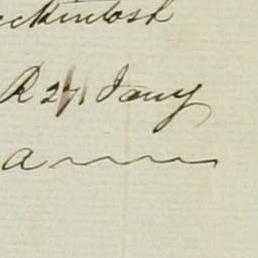 ckintosh
R 27 Jany
a